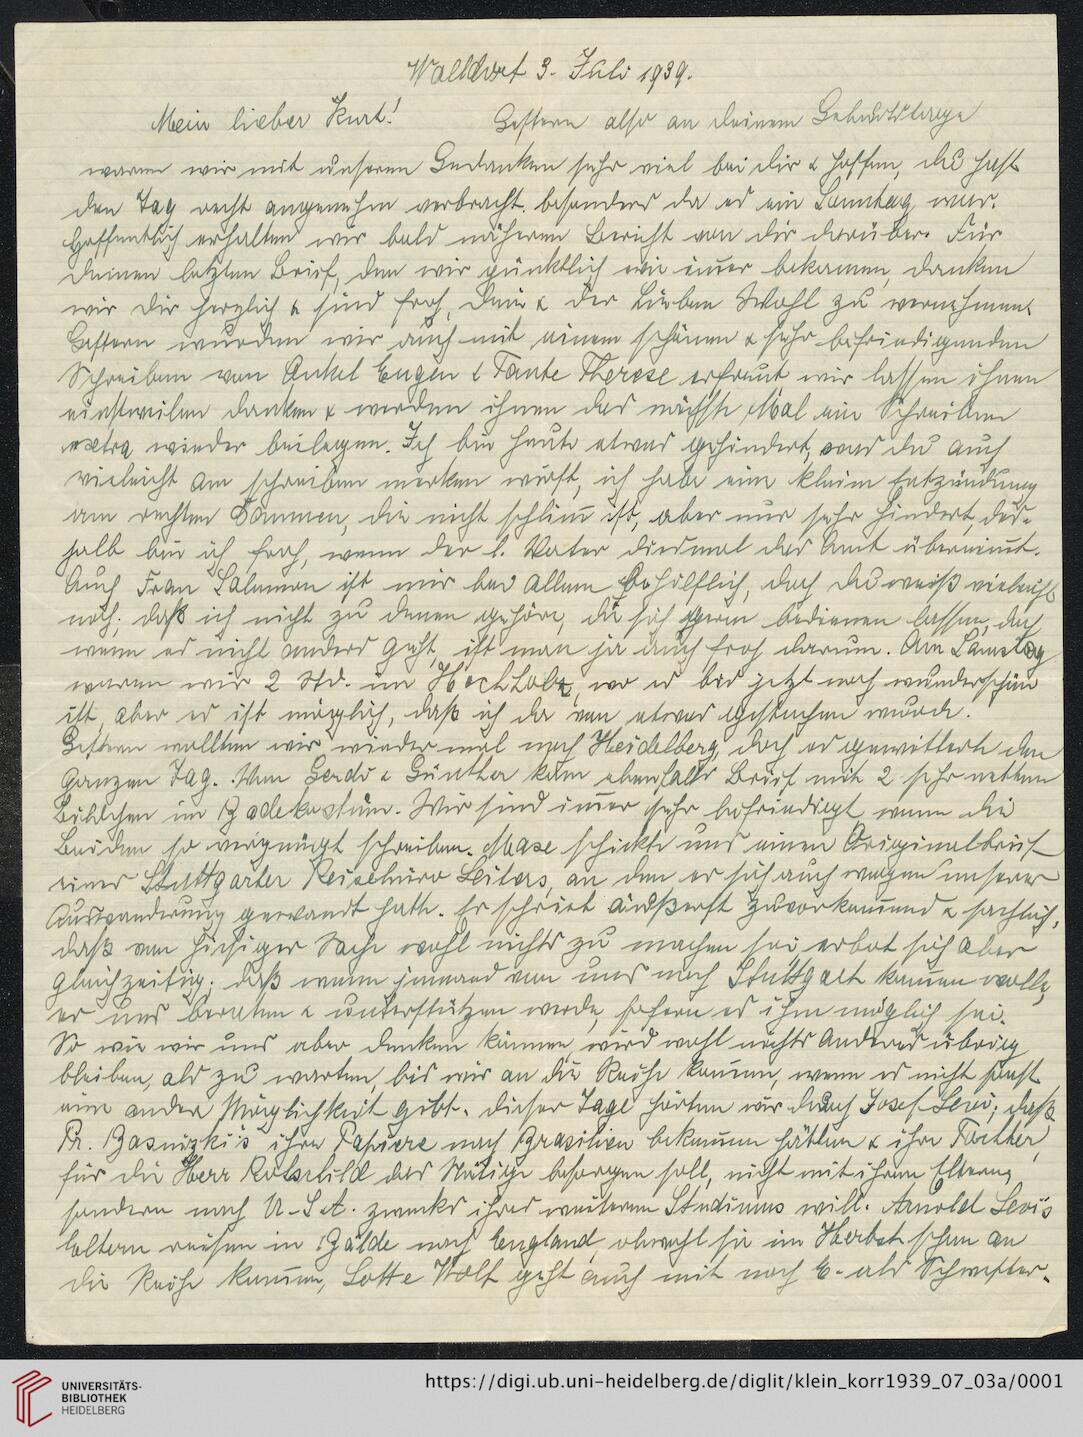 Walldorf 3. Juli 1939.
Mein lieber Kurt! Gestern also an deinem Geburtstage
waren wir mit unseren Gedanken sehr viel bei dir & hoffen, du hast
den Tag recht angenehm verbracht. besonders da es ein Sonntag war.
Hoffentlich erhalten wir bald näheren Bericht von dir darüber. Für
deinen letzten Brief, den wir pünktlich wie immer bekamen, danken
wir dir herzlich & sind froh, dein & der Lieben Wohl zu vernehmen.
Gestern wurden wir auch mit einem schönen & sehr befriedigenden
Schreiben von Onkel Eugen & Tante Therese erfreut wir lassen ihnen
einstweilen danken & werden ihnen das nächste Mal ein Schreiben
extra wieder beilegen. Ich bin heute etwas gehindert, was du auch
vieleicht am schreiben merken wirst, ich habe eine kleine Entzündung
am rechten Daumen, die nicht schlimm ist, aber nur sehr hindert, des-
halb bin ich froh, wenn der l. Vater diesmal das Amt übernimmt.
Auch Frau Salomon ist mir bei allem behilflich, doch du weiß vieleicht
noch, daß ich nicht zu denen gehöre, die sich gern bedienen lassen, doch
wenn es nicht anders geht, ist man ja auch froh darum. Am Samstag
waren wir 2 Std. im Hochholz, wo es bis jetzt noch wunderschön
ist, aber es ist möglich, daß ich da von etwas gestochen wurde.
Gestern wollten wir wieder mal nach Heidelberg, doch es gewitterte den
ganzen Tag. Von Gerdi & Günther kam ebenfalls Brief mit 2 sehr netten
Bildchen im Badekostüm. Wir sind immer sehr befriedigt wenn die
Beiden so vergnügt schreiben. Maxe schickte uns einen Originalbrief
eines Stuttgarter Reisebüro Leiters, an den er sich auch wegen unserer
Auswanderung gewandt hatte. Er schrieb äußerst zuvorkommend & sachlich,
daß von hiesiger Sache wohl nichts zu machen sei erbot sich aber
gleichzeitig, daß wenn jemand von uns nach Stuttgart kommen wolle,
er uns beraten & unterstützen werde, sofern es ihm möglich sei.
So wie wir uns aber denken können, wird wohl nichts Anderes übrig
bleiben, als zu warten, bis wir an die Reihe kommen, wenn es nicht sonst
eine andere Möglichkeit gibt. dieser Tage hörten wir durch Josef Levi, daß
Basnizki's ihre Papiere nach Brasilien bekommen hätten & ihre Tochter,
für die Herr Rotschild das Nötige besorgen soll, nicht mit ihren Eltern,
sondern nach U.S.A. zwecks ihres weiteren Studiums will. Arnold Levi's
Eltern reisen in Bälde nach England, obwohl sie im Herbst schon an
die Reihe kommen, Lotte Wolf geht auch mit nach E. als Schwester.
UNIVERSITÄTS-
BIBLIOTHEK
HEIDELBERG
https://digi.ub.uni-heidelberg.de/diglit/klein_korr1939_07_03a/0001